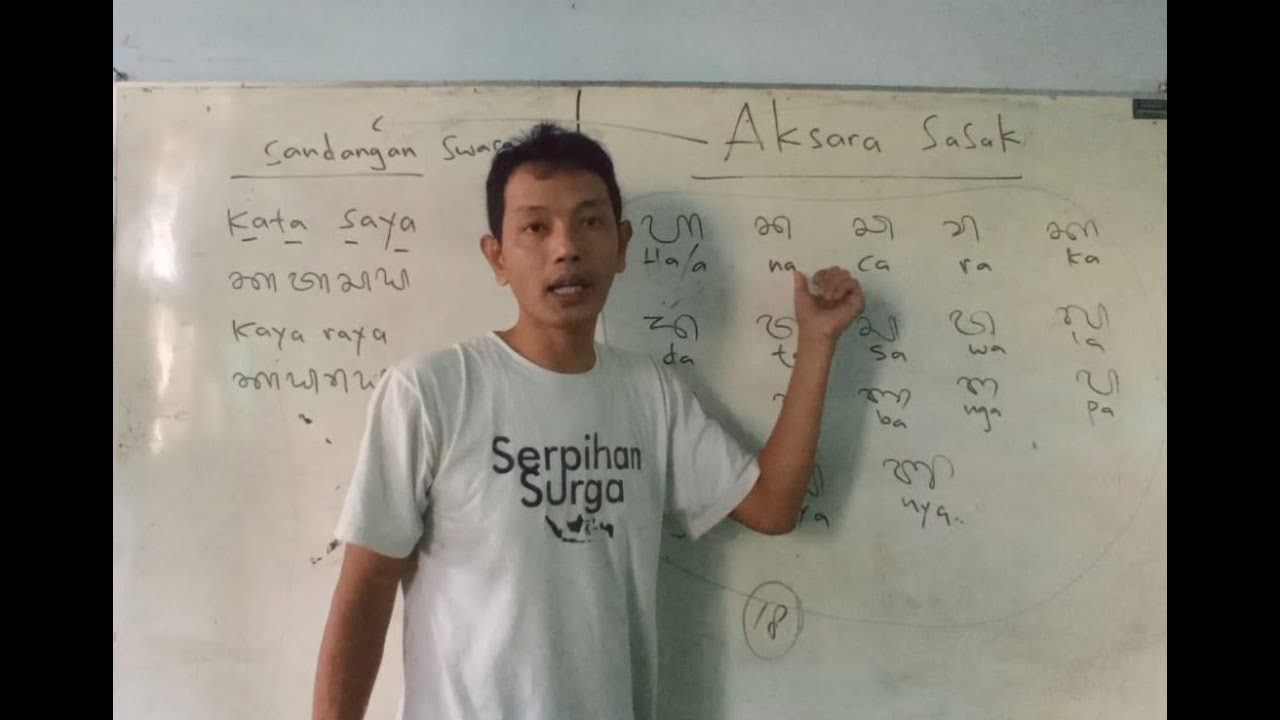 Sandangan Swara
Kata Saya
ᬓᬢᬲᬬ
Kaya raya
ᬓᬬᬭᬬ
Aksara Sasak
ᬳ ᬦ ᬘ ᬭ ᬓ
Ha/a na ca ra ka
ᬤ ᬢ ᬲ ᬯ ᬮ
da ta sa wa la
ᬩ ᬗ ᬧ
ba nga pa
ᬜ
ya nya..
18
Serpihan
Surga